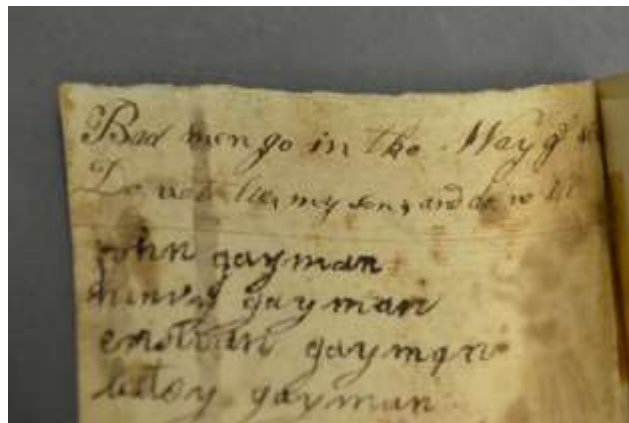 Bad men go in the Way of
Do not lie, my son, and do no ill
john gayman
henry gayman
gayman
betsy gayman